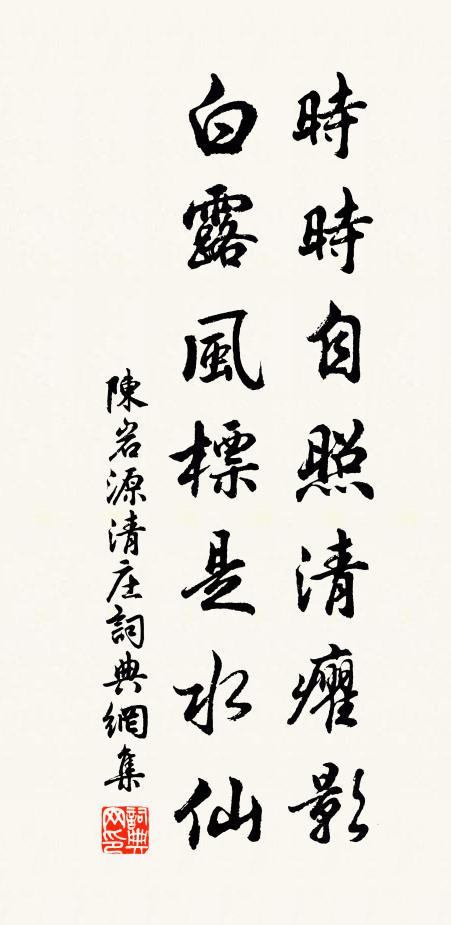 時時自照清癯影
白露風標是水仙
陳岩源清庄詞典網集
詞典
网印